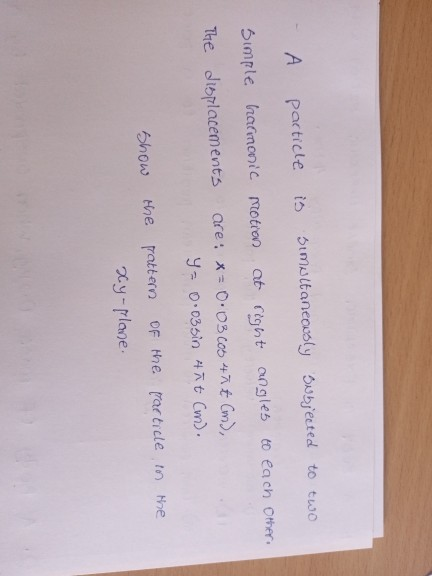 A particle is simultaneously subjected to two
simple harmonic motion at right angles to each other.
The displacements are: x = 0.03 cos 4πt (m),
y = 0.03 sin 4πt (m).
Show the pattern of the particle in the
xy-plane.